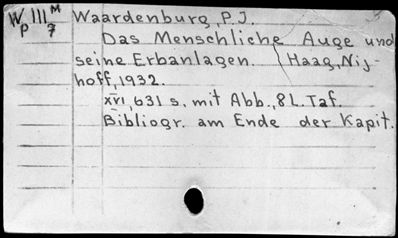 W III M Waardenburg, P. J.
p 7
Das Menschliche Auge und
seine Erbanlagen. Haag, Nij-
hoff, 1932.
XVI, 631 s. mit Abb., 8 L. Taf.
Bibliogr. am Ende der Kapit.